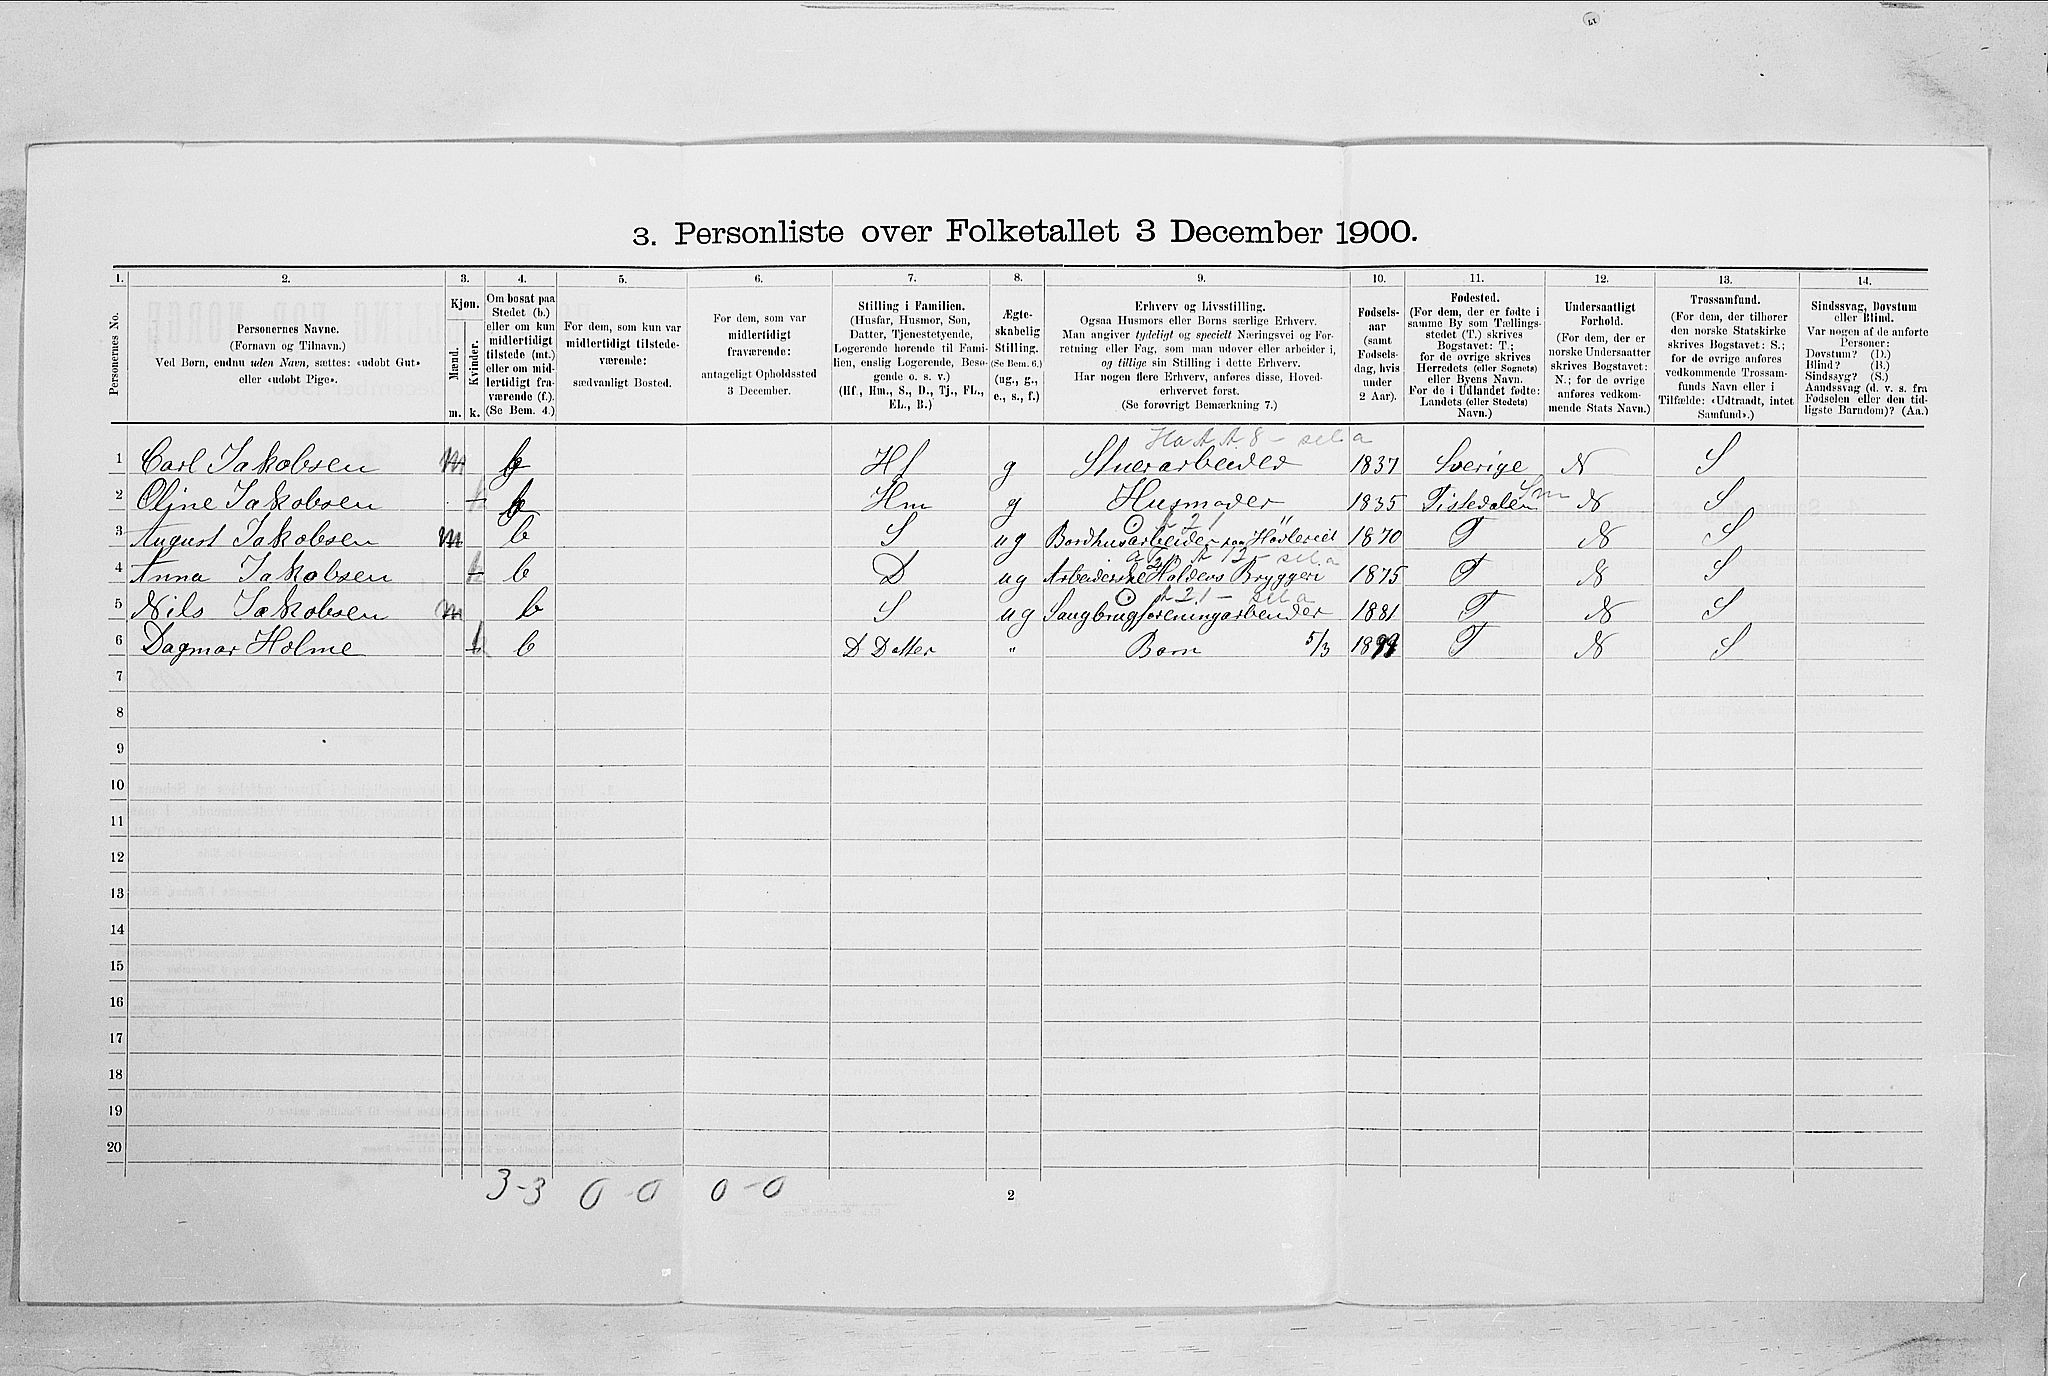 3. Personliste over Folketallet 3 December 1900.
1. 2. 3. 4. 5. 6. 7. 8. 9. 10. 11. 12. 13. 14.
Personernes No.
Personernes Navne.
(Fornavn og Tilnavn.)
Ved Børn, endnu uden Navn, sættes: «udøbt Gut»
eller «udøbt Pige».
Kjøn.
Mænd.
Kvinder.
m. k.
Om bosat paa
Stedet (b.)
eller om kun
midlertidigt
tilstede (mt.)
eller om mid-
lertidigt fra-
værende (f.).
(Se Bem. 4.)
For dem, som kun var
midlertidigt tilstede-
værende:
sædvanligt Bosted.
For dem, som var
midlertidigt
fraværende:
antageligt Opholdssted
3 December.
Stilling i Familien.
(Husfar, Husmor, Søn,
Datter, Tjenestetyende,
Logerende hørende til Fami-
lien, enslig Logerende, Besø-
gende o. s. v.)
(Hf., Hm., S., D., Tj., FL.,
EL., B.)
Ægte-
skabelig
Stilling.
(Se Bem. 6.)
(ug., g.,
e., s., f.)
Erhverv og Livsstilling.
Ogsaa Husmors eller Børns særlige Erhverv.
Man angiver tydeligt og specielt Næringsvei og For-
retning eller Fag, som man udover eller arbeider i,
og tillige sin Stilling i dette Erhverv.
Har nogen flere Erhverv, anføres disse, Hoved-
erhvervet først.
(Se forøvrigt Bemærkning 7.)
Fødsels-
aar
(samt
Fødsels-
dag, hvis
under
2 Aar).
Fødested.
(For dem, der er fødte i
samme By som Tællings-
stedet (T.) skrives
Bogstavet: T.;
for de øvrige skrives
Herredets (eller Sognets)
eller Byens Navn.
For de i Udlandet fødte:
Landets (eller Stedets)
Navn.)
Undersaatligt
Forhold.
(For dem, der er
norske Undersaatter
skrives Bogstavet:
N.; for de øvrige
anføres vedkom-
mende Stats Navn.)
Trossamfund.
(For dem, der tilhører
den norske Statskirke
skrives Bogstavet: S.;
for de øvrige anføres
vedkommende Trossam-
funds Navn eller i
Tilfælde: «Udtraadt, intet
Samfund».)
Sindssvag, Døvstum
eller Blind.
Var nogen af de anførte
Personer:
Døvstum? (D.)
Blind? (B.)
Sindssyg? (S.)
Aandssvag (d. v. s. fra
Fødselen eller den tid-
ligste Barndom)? (Aa.)
1 Carl Jakobsen m b Hf g Stuerarbeider 1837 Sverige N S
2 Oline Jakobsen k b Hm g Husmoder 1835 Tistedalen Sm N S
3 August Jakobsen m b S ug Bordhusarbeider paa Høvleriet 1870 T N S
4 Anna Jakobsen k b D ug Arbeiderske Haldens Bryggeri 1875 T N S
5 Nils Jakobsen m b S ug Saugbrugsforeningarbeider 1881 T N S
6 Dagmar Holme k b D Datter " Barn 5/3 1899 T N S
7
8
9
10
11
12
13
14
15
16
17
18
19
20
3-3 0-0 0-0
2